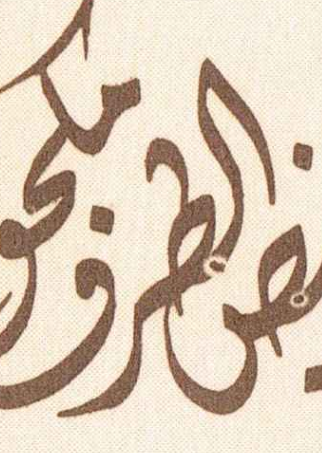 يض الطرف مكحو